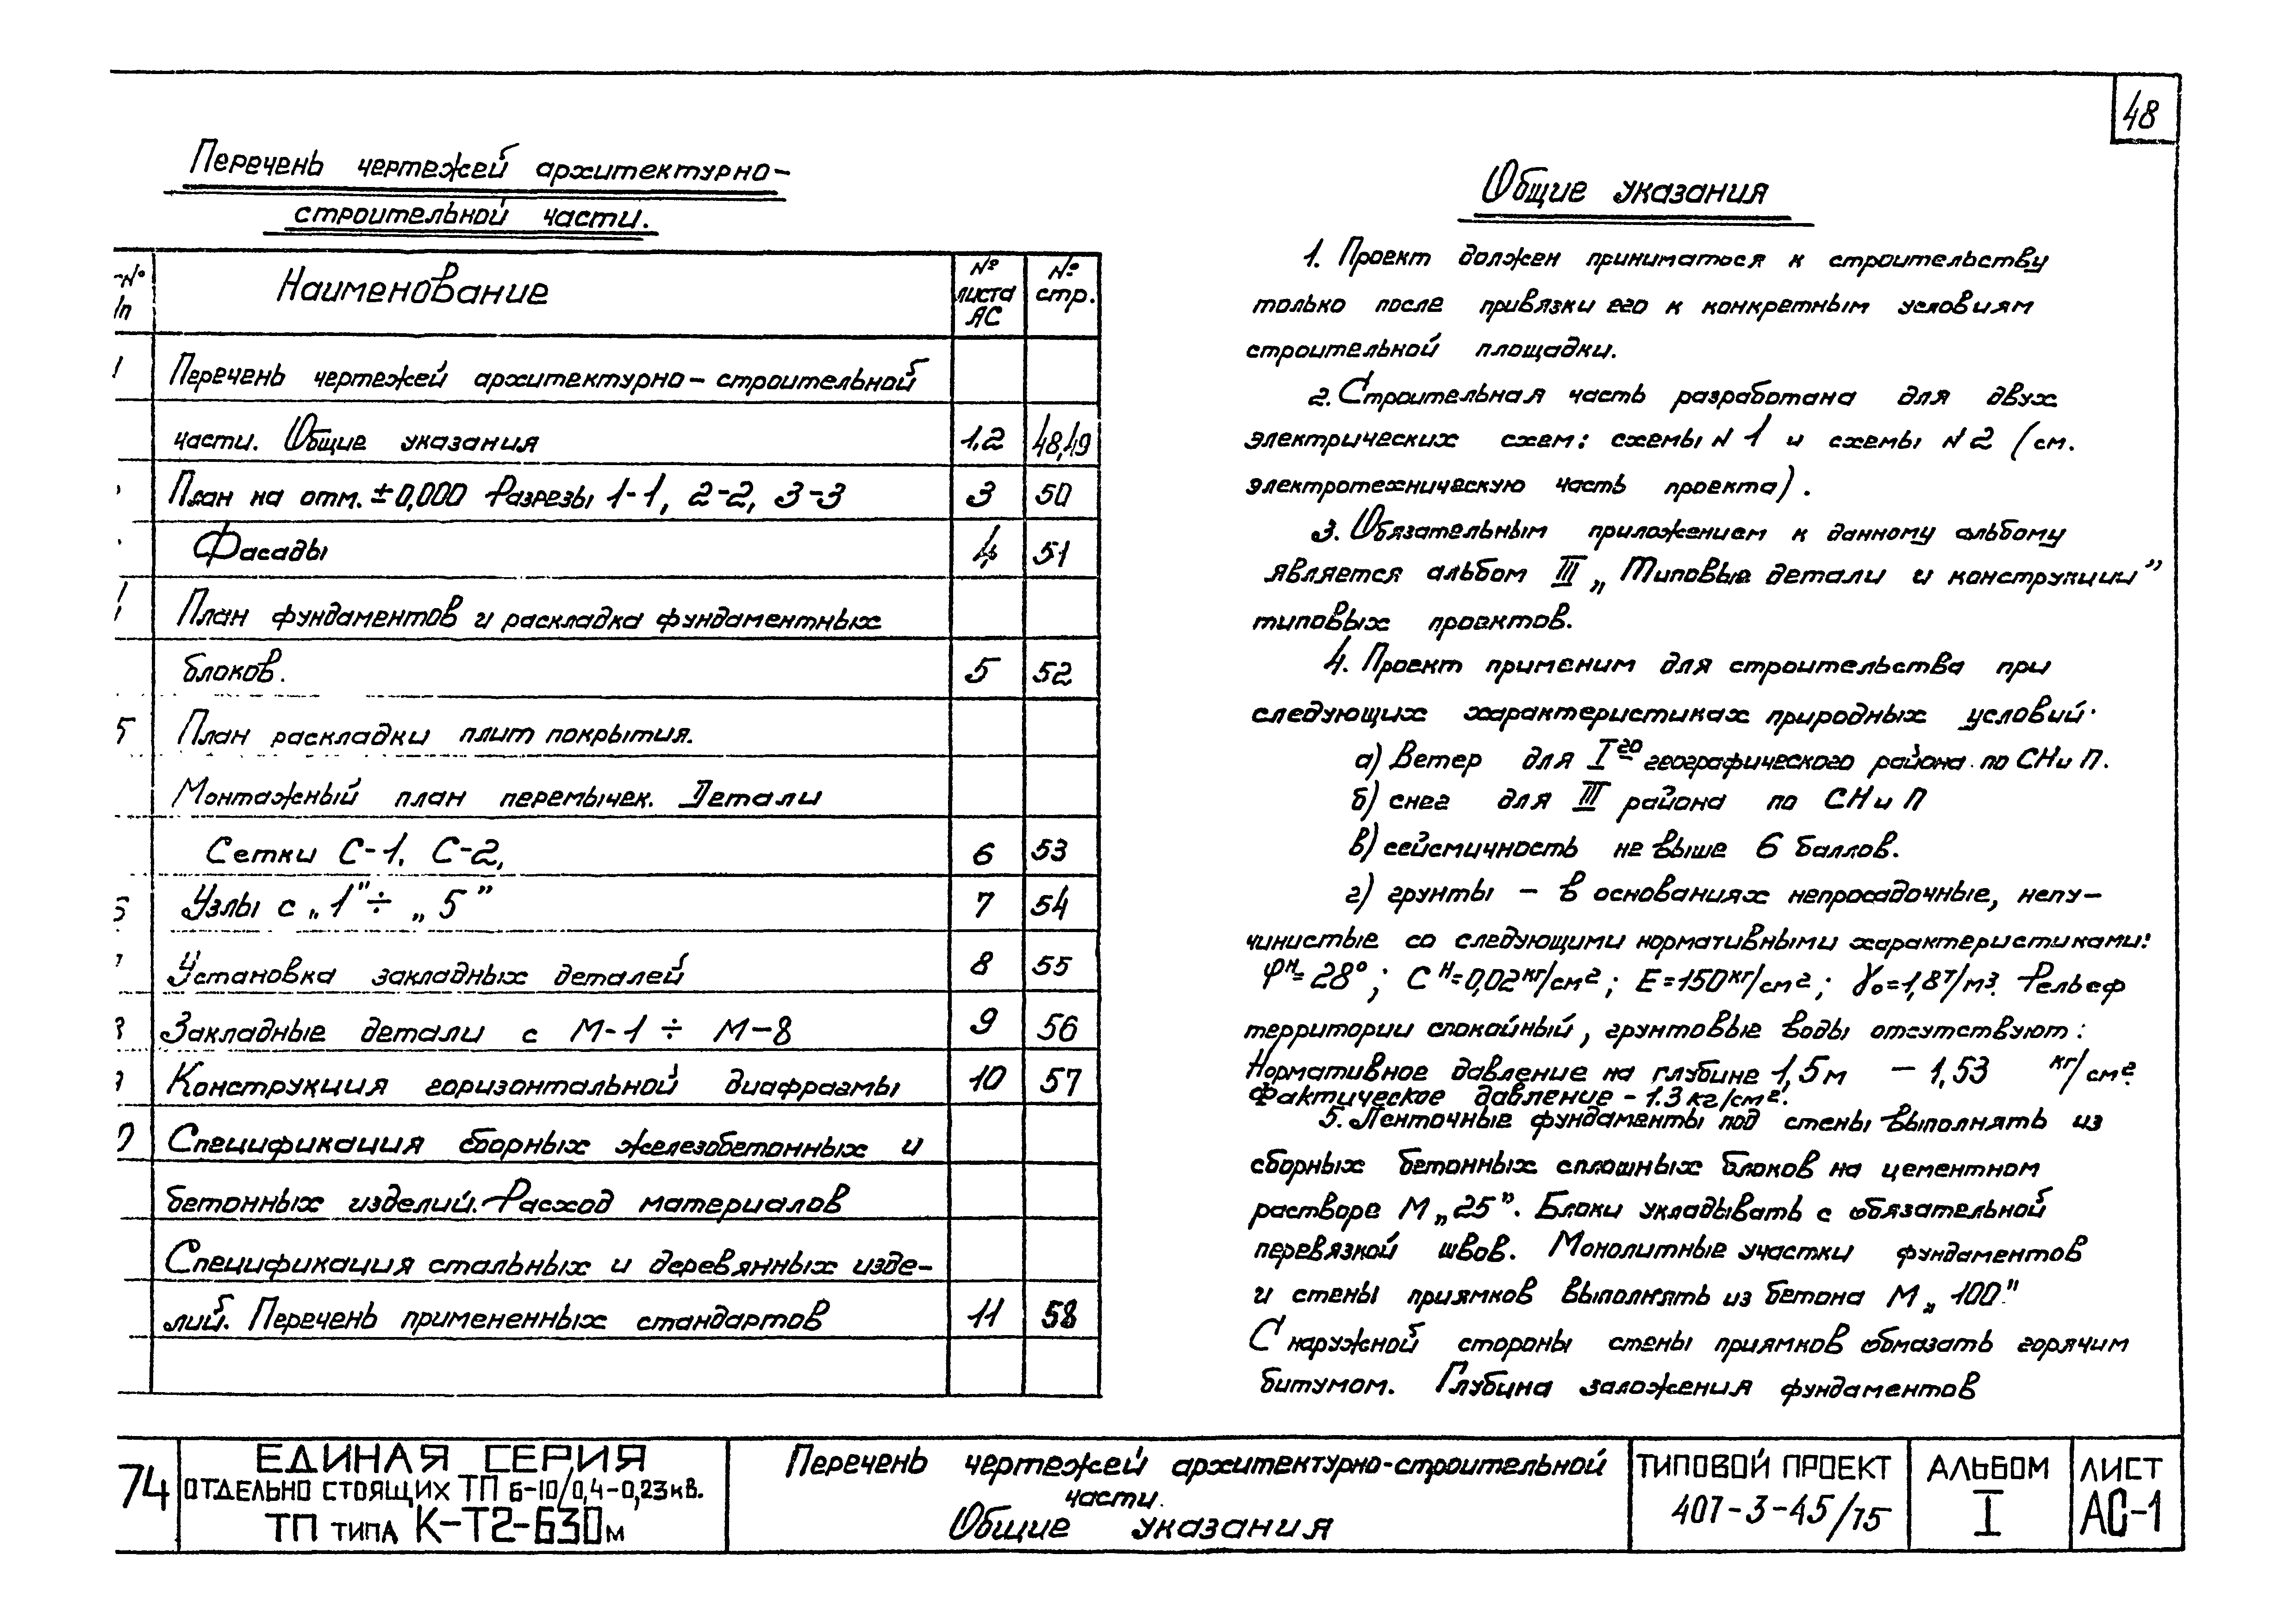 48
Перечень чертежей архитектурно-
строительной части.
№ Наименование № листа АС № стр.
1 Перечень чертежей архитектурно-строительной
части. Общие указания 1,2 48,49
План на отм. ±0,000 Разрезы 1-1, 2-2, 3-3 3 50
Фасады 4 51
План фундаментов и раскладка фундаментных
блоков. 5 52
5 План раскладки плит покрытия.
Монтажный план перемычек. Детали
Сетки С-1. С-2, 6 53
Узлы с „1" ÷ „5" 7 54
Установка закладных деталей 8 55
Закладные детали с М-1 ÷ М-8 9 56
Конструкция горизонтальной диафрагмы 10 57
Спецификация сборных железобетонных и
бетонных изделий. Расход материалов
Спецификация стальных и деревянных изде-
лий. Перечень примененных стандартов 11 58
Общие указания
1. Проект должен приниматься к строительству
только после привязки его к конкретным условиям
строительной площадки.
2. Строительная часть разработана для двух
электрических схем: схемы N 1 и схемы N 2 (см.
электротехническую часть проекта).
3. Обязательным приложением к данному альбому
является альбом III „Типовые детали и конструкции"
типовых проектов.
4. Проект применим для строительства при
следующих характеристиках природных условий.
а) Ветер для I го географического района по СНиП.
б) снег для III района по СНиП
в) сейсмичность не выше 6 баллов.
г) грунты – в основаниях непросадочные, непу-
чинистые со следующими нормативными характеристиками:
φн=28°; Cн=0,02кг/см²; E=150кг/см²; γ₀=1,8т/м³. Рельеф
территории спокойный, грунтовые воды отсутствуют:
Нормативное давление на глубине 1,5м – 1,53 кг/см².
Фактическое давление – 1.3кг/см².
5. Ленточные фундаменты под стены выполнять из
сборных бетонных сплошных блоков на цементном
растворе М„25". Блоки укладывать с обязательной
перевязкой швов. Монолитные участки фундаментов
и стены приямков выполнять из бетона М„100."
С наружной стороны стены приямков обмазать горячим
битумом. Глубина заложения фундаментов
74
ЕДИНАЯ СЕРИЯ
ОТДЕЛЬНО СТОЯЩИХ ТП 6-10/0,4-0,23кв.
ТП ТИПА К-Т2-630м
Перечень чертежей архитектурно-строительной
части.
Общие указания
ТИПОВОЙ ПРОЕКТ
407-3-45/75
АЛЬБОМ
I
ЛИСТ
АС-1